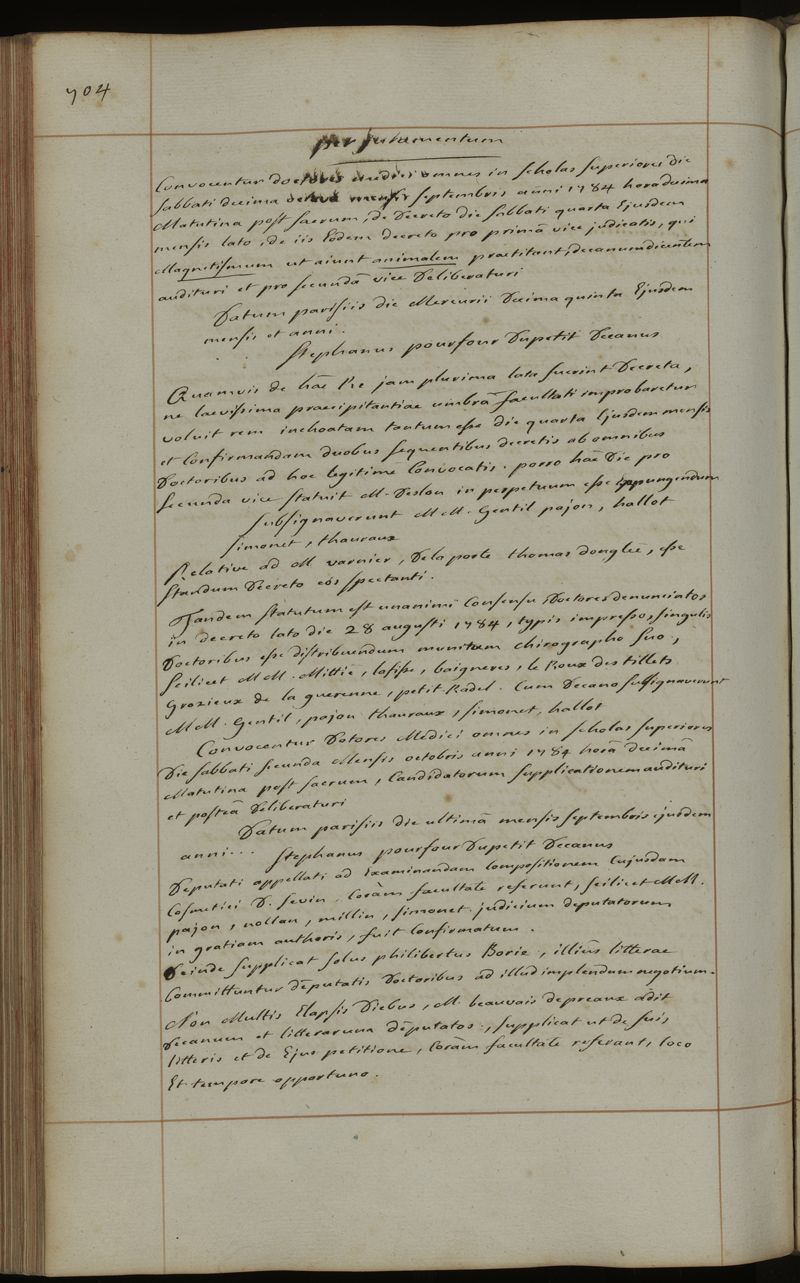 704
per juramentum
Convocentur doctores medici omnes in scholas superiores die
sabbati decima octava mensis septembris anni 1784 hora decima
Matutina post sacrum, de Decreto die sabbati quarta Ejusdem
mensis lato, de iis Eodem decreto pro primâ vice judicatis, qui
Magnetismum ut aiunt animalem practitant, decanum dicentem
audituri et pro secundâ vice Deliberaturi
Datum parisiis die Mercurii Decima quinta Ejusdem
mensis et anni.
Stephanus pourfour Dupetit Decanus
Quamvis de hâc Re jam plurima lata fuerint Decreta,
ne laevissima praecipitantiae umbrâ facultati improbaretur
voluit rem inchoatam tantum esse die quarta Ejusdem mensis
et Confirmandam duobus sequentibus decretis ab omnibus
Doctoribus ad hoc legitimè Convocatis. porro hâc Die pro
secunda vice statuit M. Deslon in perpetuum esse expungendum
subsignaverunt MM. Gentil pajon, hallot
simonet, thauraux
Relative ad M varnier, Delaporte thomas donglée, esse
standum Decreto eòs spectanti.
Tandem statutum est unanimi Consensu Doctores denunciatos
in decreto lato die 28 augusti 1784, typis impresso, singulis
Doctoribus esse distribuendum munitum chirographo suo,
scilicet MM. Mittié, lasisse, baigneres, le Roux des tillets
Grozieux de la guerenne, petit Radel. Cum Decano subsignaverunt
MM. Gentil, pajon thauraux, simonet, hallot
Convocentur Dotores Medici omnes in scholas superiores
Die sabbati secunda Mensis octobris anni 1784 horâ decimâ
Matutina post sacrum, Candidatorum supplicationem audituri
et posteâ Deliberaturi
Datum parisiis die ultimâ mensis septembris ejusdem
anni... Stephanus pourfour Dupetit Decanus
Deputati appellati ad Examinandam Compositionem Cujusdam
Cosmetici D. sevin, Coràm facultate referunt, scilicet MM.
pajon, nollan, millin, simonet. judicium deputatorum
in gratiam authoris, fuit Confirmatum.
Deinde supplicat solus philibertus Borie, illius litterae
Committuntur deputatis Doctoribus ad illud implendum negotium.
Non Multis Elapsis Diebus, M. beauvais depreaux adit
Decanum et litterarum députatos, supplicat ut de suis
litteris et de Ejus petitione, Coràm facultate referant, loco
Et tempore opportuno.